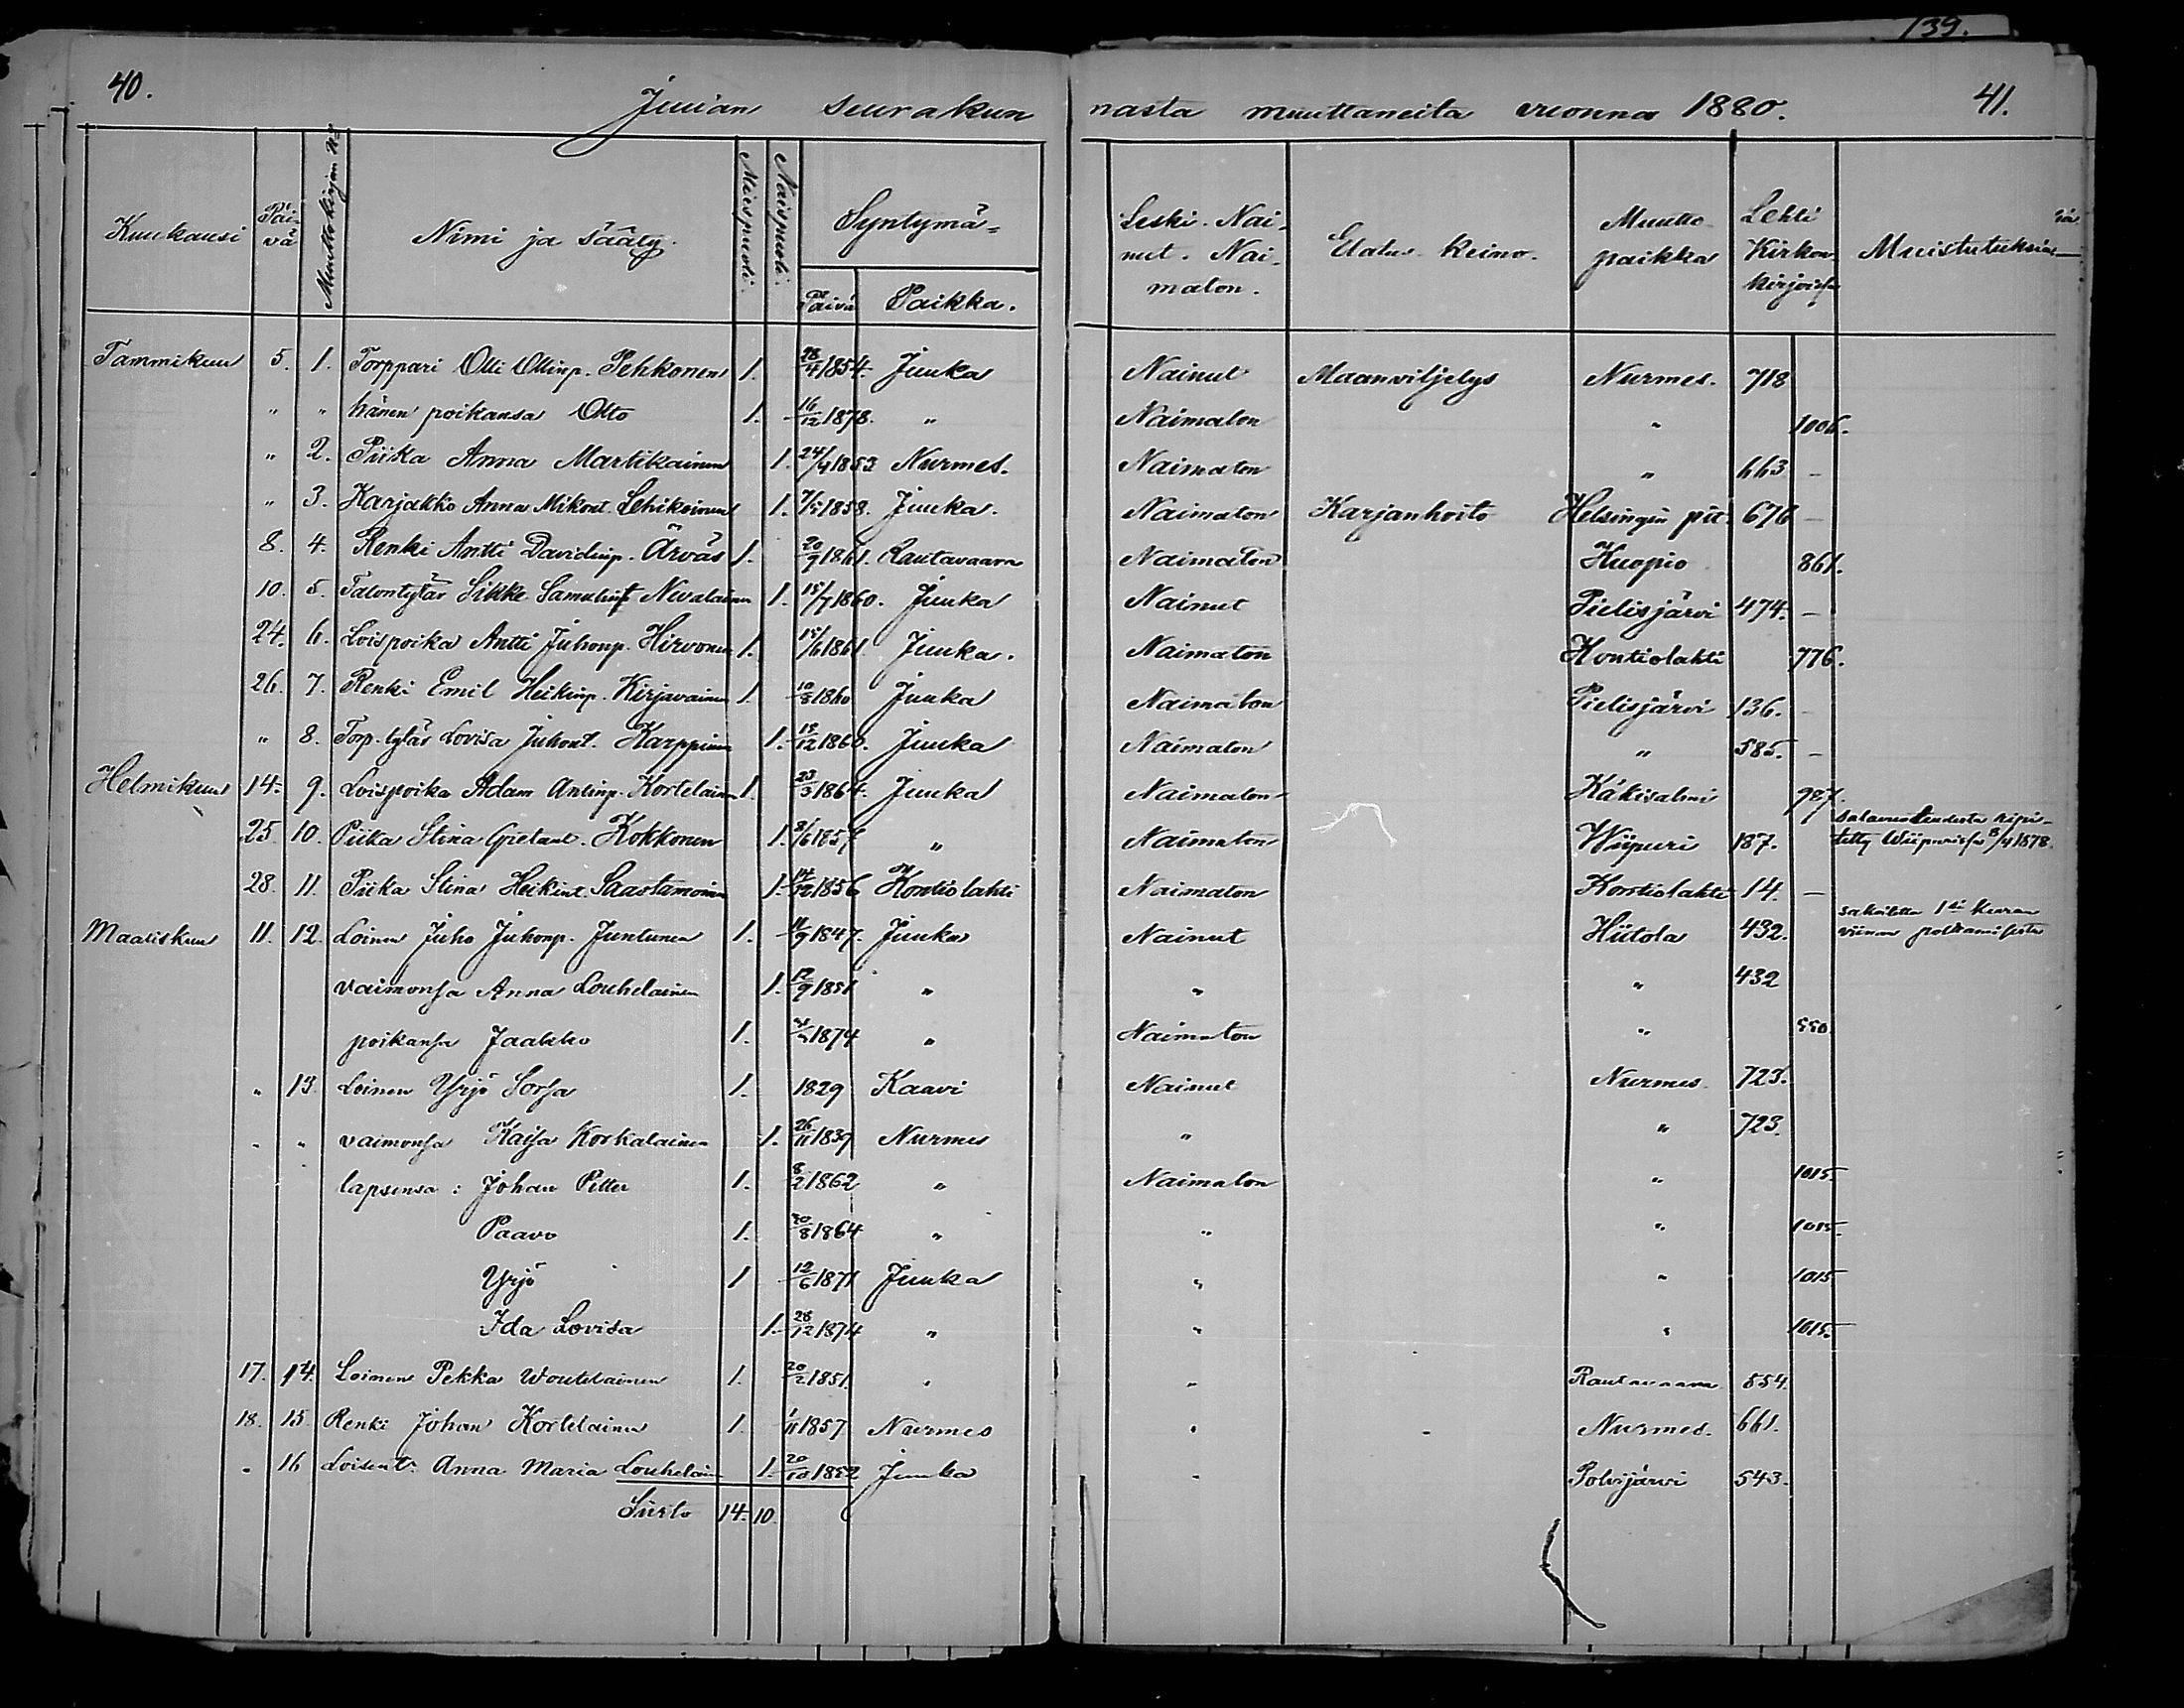 139.
40. Juuan seurakun nasta muuttaneita vuonna 1880. 41.
Kuukausi Päi- vä Muuttokirjan No Nimi ja sääty. Miespuoli. Naispuoli. Syntymä- Päivä Paikka. Leski. Nai- nut. Nai- maton. Elatus-keino. Muutto paikka Lehti Kirkon- kirjoissa Muistutuksia
Tammikuu 5. 1. Torppari Olli Ollinp. Pehkonen 1. 28/4 1854. Juuka Nainut Maanviljelys Nurmes. 718
" " hänen poikansa Otto 1. 16/12 1878. " Naimaton " 1006.
" 2. Piika Anna Martikainen 1. 24/4 1853 Nurmes. Naimaton " 663 -
" 3. Karjakko Anna Mikont. Lehikoinen 1. 1858. Juuka. Naimaton Karjanhoito Helsingin pit. 676 -
8. 4. Renki Antti Davidinp. Ärväs 1. 20/9 1861. Rautavaara Naimaton Kuopio 861.
10. 5. Talontytär Sikke Samulint Nevalainen 1. 15/7 1860. Juuka Nainut Pielisjärvi 474. -
24. 6. Loispoika Antti Juhonp. Hirvonen 1. 15/6 1861. Juuka. Naimaton Kontiolahti 776.
26. 7. Renki Emil Heikinp. Kirjavainen 1. 10/8 1860 Juuka Naimaton Pielisjärvi 136. -
" 8. Torp. tytär Lovisa Juhont. Karppinen 1. 1860. Juuka Naimaton " 585. -
Helmikuu 14. 9. Loispoika Adam Antinp. Kortelainen 1. 23/3 1864. Juuka Naimaton Käkisalmi 987.
25. 10. Piika Stina Kokkonen 1. 1857 " Naimaton Wiipuri 187. salavuoteudesta ripi- tetty Wiipurissa 1878.
28. 11. Piika Stina Heikint. Saastamoinen 1. 14/12 1856 Kontiolahti Naimaton Kontiolahti 14. -
Maaliskuu 11. 12. Loinen Juho Juhonp. Juntunen 1. 11/9 1847. Juuka Nainut Hiitola 432. sakoitettu 1:si kerran viinan
vaimonsa Anna Louhelainen 1. 12/9 1851 " " " 432
poikansa Jaakko 1. 1874 " Naimaton " 550.
" 13. Loinen Yrjö Sorsa 1. 1829 Kaavi Nainut Nurmes 723.
" " vaimonsa Kaisa Korkalainen 1. 26/11 1839 Nurmes " " 723.
lapsensa : Johan Petter 1. 8/2 1862 " Naimaton " 1015.
Paavo 1. 30/8 1864 " " " 1015.
Yrjö 1 12/6 1871 Juuka " " 1015
Ida Lovisa 1. 28/12 1874 " " " 1015.
17. 14. Loinen Pekka Woutelainen 1. 20/2 1851. " " Rautavaara 554.
18. 15. Renki Johan Kortelainen 1. 1/11 1857 Nurmes " Nurmes. 661.
" 16 Loisent. Anna Maria Louhelain 1. 20/10 1852 Juuka " Polvijärvi 543.
Siirto 14. 10.